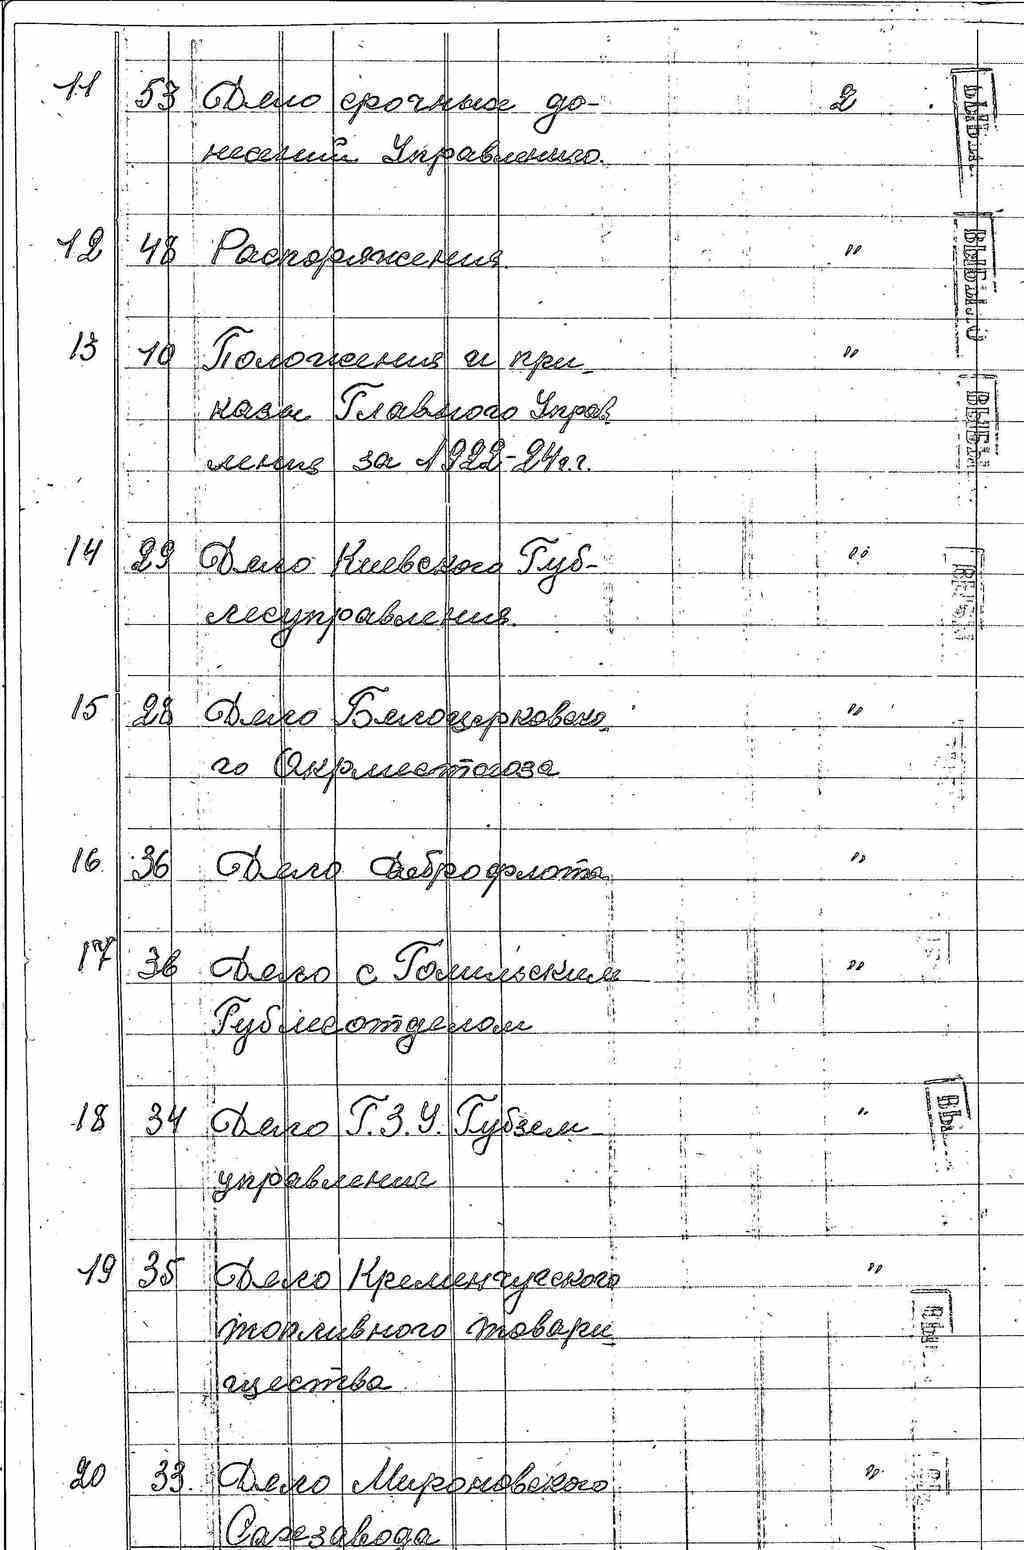 11 53 Дело срочных до- 2
несений Управлению. ВЫБЫЛ.
12 48 Распоряжения " ВЫБЫЛО
13 10 Положения и при- "
казы Главного Управ ВЫБЫ
ления за 1922-24 г.г.
14 29 Дело Киевского Губ- "
лесуправления
15 28 Дело Белоцерковско "
го Окрместхоза
16 36 Дело Доброфлота "
17 36 Дело с Гомильским "
Гублесотделом
18 34 Дело Г.З.У. Губзем " ВЫ
управления
19 35 Дело Кременчугского "
топливного товари ВЫ
щества
20 33. Дело Мироновского "
Сахзавода